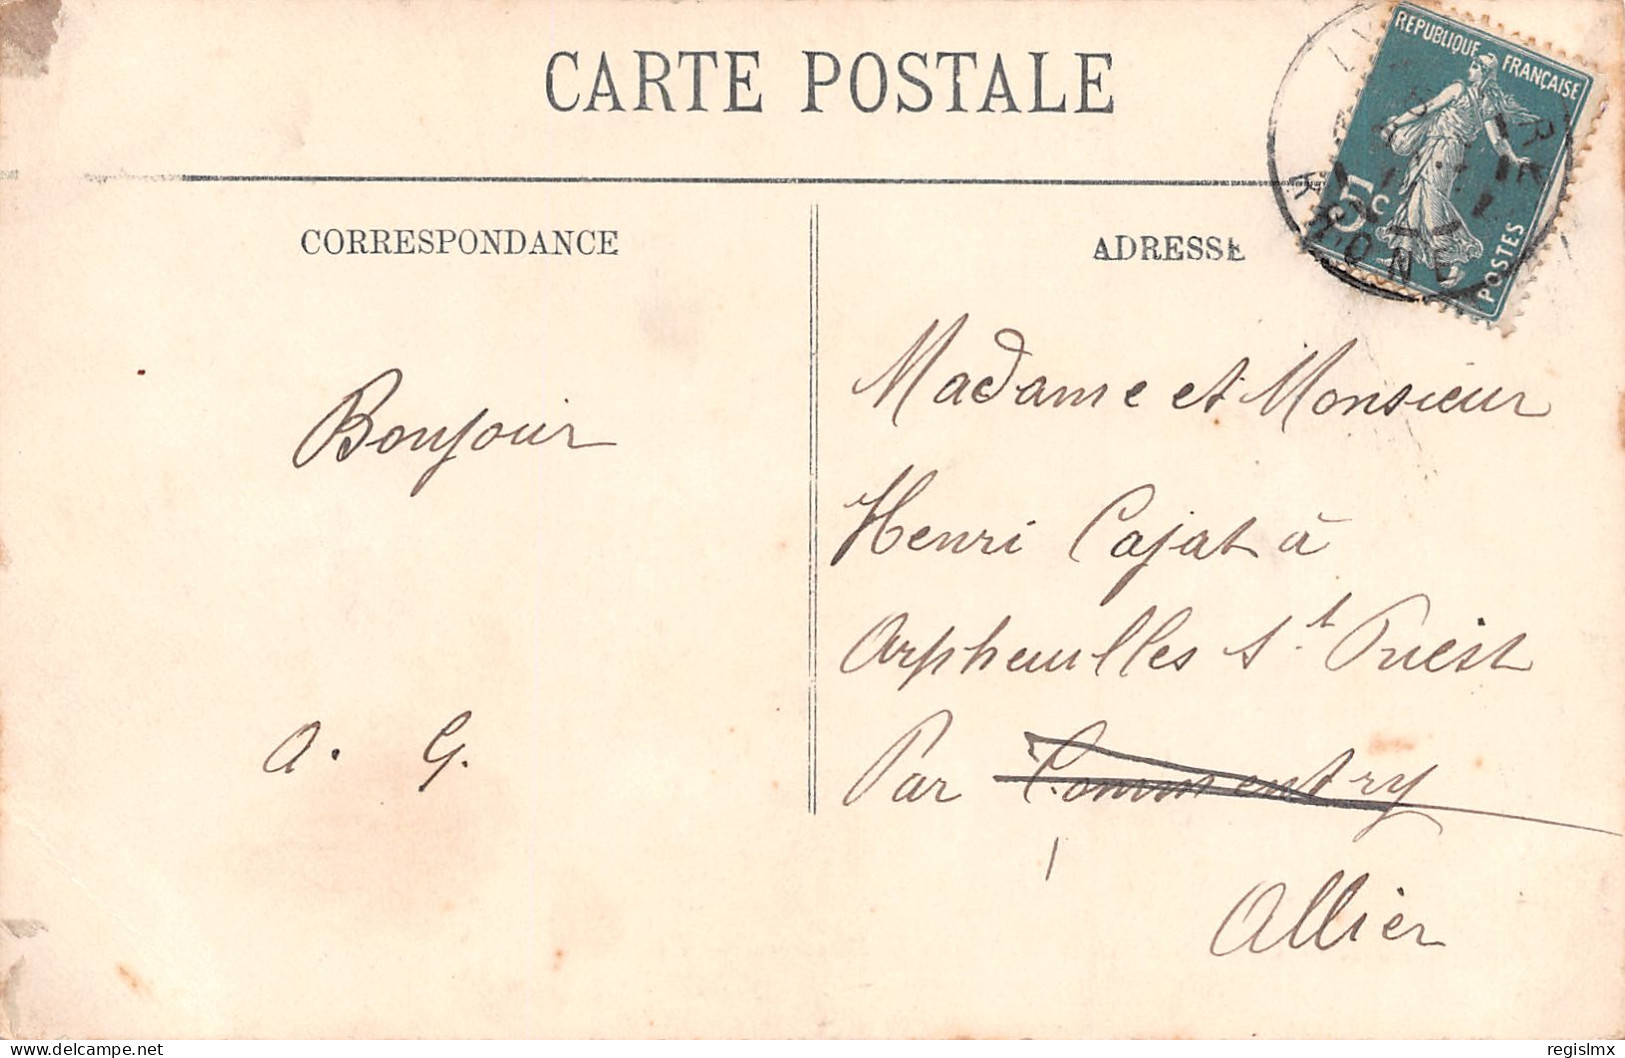 CARTE POSTALE
RÉPUBLIQUE FRANÇAISE
5c
POSTES
RHONE
CORRESPONDANCE
ADRESSE
Bonjour
A. G.
Madame et Monsieur
Henri Cajat à
Arpheuilles St Priest
Par Commentry
Allier
regislmx
delcampe.net